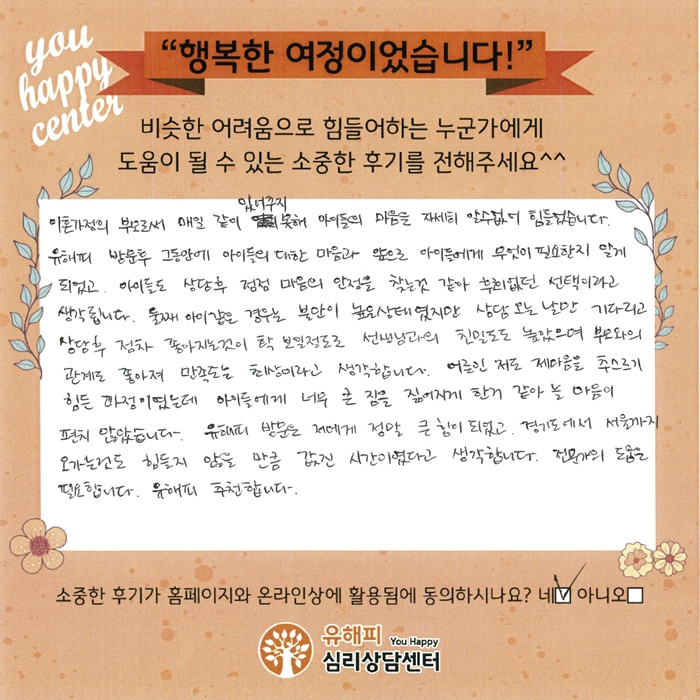 you
happy
center
“행복한 여정이었습니다!”
비슷한 어려움으로 힘들어하는 누군가에게
도움이 될 수 있는 소중한 후기를 전해주세요^^
있어주지
이혼가정의 부모로써 매일 같이 못해 아이들의 마음을 자세히 알수없어 힘들었습니다.
유해피 방문후 그동안에 아이들의 대한 마음과 앞으로 아이들에게 무엇이 필요한지 알게
되었고. 아이들도 상담후 점점 마음의 안정을 찾는것 같아 후회없던 선택이라고
생각됩니다. 둘째 아이같은 경우는 불안이 높은상태였지만 상담 오는 날만 기다리고
상담후 점차 좋아지는것이 탁 보일정도로 선생님과의 친밀도도 높았으며 부모와의
관계도 좋아져 만족도는 최상이라고 생각합니다. 어른인 저도 제마음을 추스르기
힘든 과정이였는데 아이들에게 너무 큰 짐을 짊어지게 한거 같아 늘 마음이
편치 않았습니다. 유해피 방문은 저에게 정말 큰 힘이 되었고. 경기도에서 서울까지
오가는것도 힘들지 않을 만큼 값진 시간이였다고 생각합니다. 전문가의 도움은
필요합니다. 유해피 추천합니다.
소중한 후기가 홈페이지와 온라인상에 활용됨에 동의하시나요? 네☑ 아니오☐
유해피 You Happy
심리상담센터